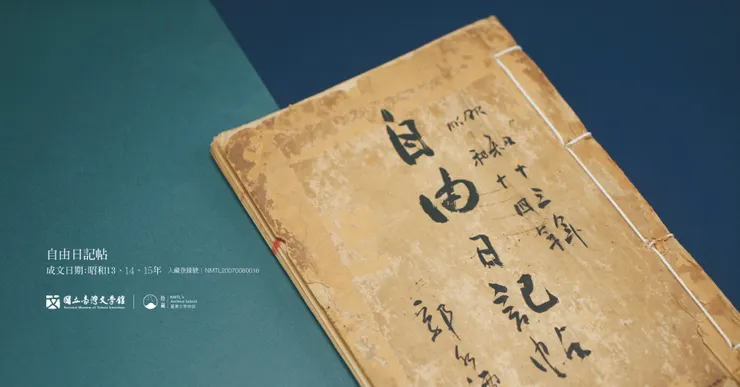 自由日記帖
昭和十三年
昭和十四年
郭水潭
自由日記帖
成文日期:昭和13、14、15年 入藏登錄號|NMTL20070060016
國立台灣文學館
National Museum of Taiwan Literature
拾藏
NMTL's
Archive Select
臺灣文學物語